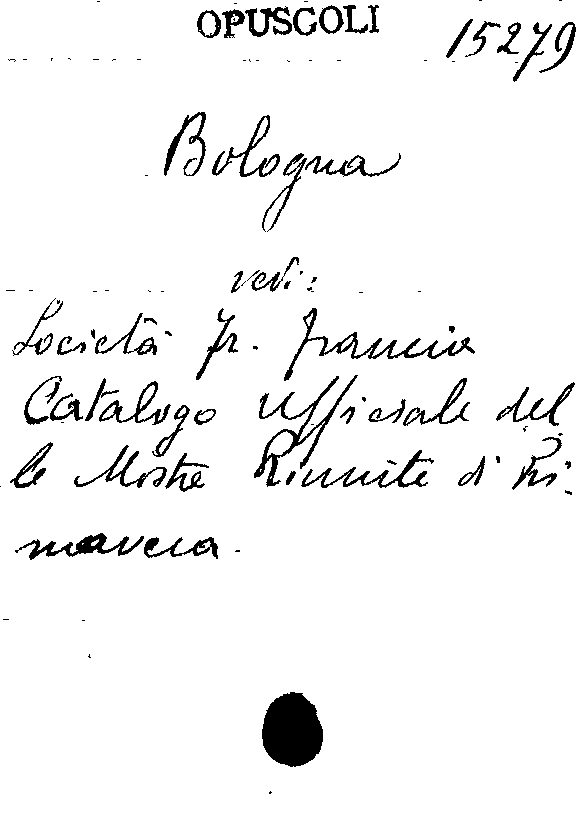 OPUSCOLI 15279
Bologna
vedi:
Società Fr. Francia
Catalogo Ufficiale del
le Mostre Riunite di Pri-
mavera.